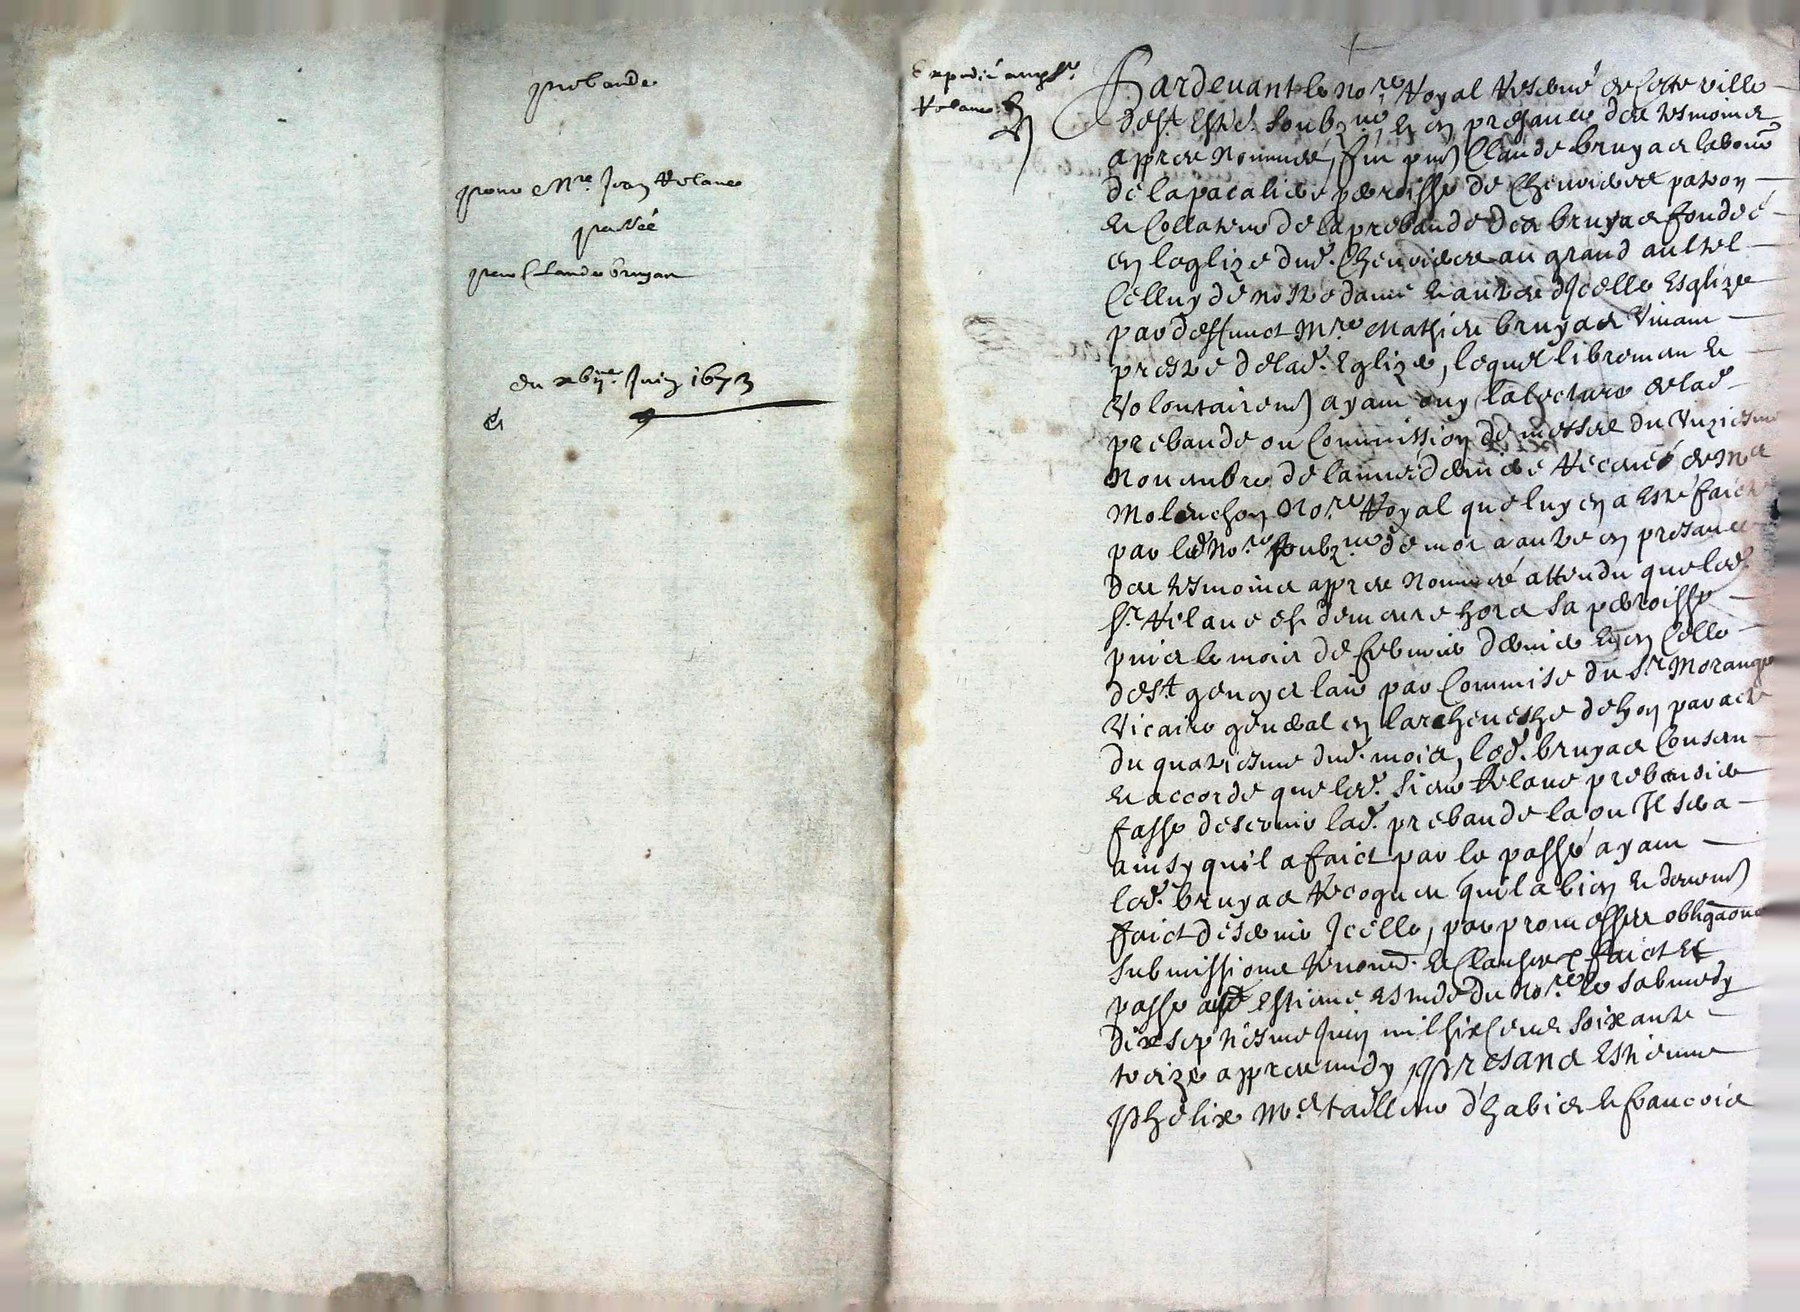 prebande
pour Mre. Jean Velane
passée
par Claude bruyas
du xbiime. Juin 1673
Expedié aud sr.
Velane
Pardevant le nore. Royal reservé de cette ville
de st. Estne. soubzne, et en presance des tesmoings
appres nommés, fut pnt Claude bruyas labour
de la pacaliere parroisse de Chevrieres patron
et Collateur de la prebande des bruyas fondée
en leglize dud. Chevrieres au grand aultel
Celluy de nostre dame et autres dicelle Esglize
par deffunct Mre Mathieu bruyas vivant
prestre de lad. Eglize, lequel libremant et
Volontairemt ayant ouy la lecture de lad
prebande ou Commission de messes du Unziesme
Novembre de lannée derniere receue de Me
Molenchon Nore. Royal que luy en a esté faicte
par led Nore. soubzne de mot a autre en presance
des tesmoins appres nommés attendu que led.
sr. Velane est demeure hors sa parroisse
puis le mois de febvrier dernier et en Celle
de st. genys lair par Commise du sr. Morange
Vicaire general en larchevesche de lyon par acte
du quatriesme dud. mois, led. bruyas Consent
et accorde que led. sieur Velane prebandier
fasse deservir lad. prebande la ou Il sera
ainsy quil a faict par le passé ayant
led. bruyas recognu quil a bien et deuemt
faict deservir Icelle, par promesses obligaons
submissions renond. et Clauses faict et
passé a st Estienne estude du Nore. le sabmedy
dix septiesme Juin mil six Cents soixante
treize appres midy, Presans Estienne
Phelix Me. tailleur d'habis et francois